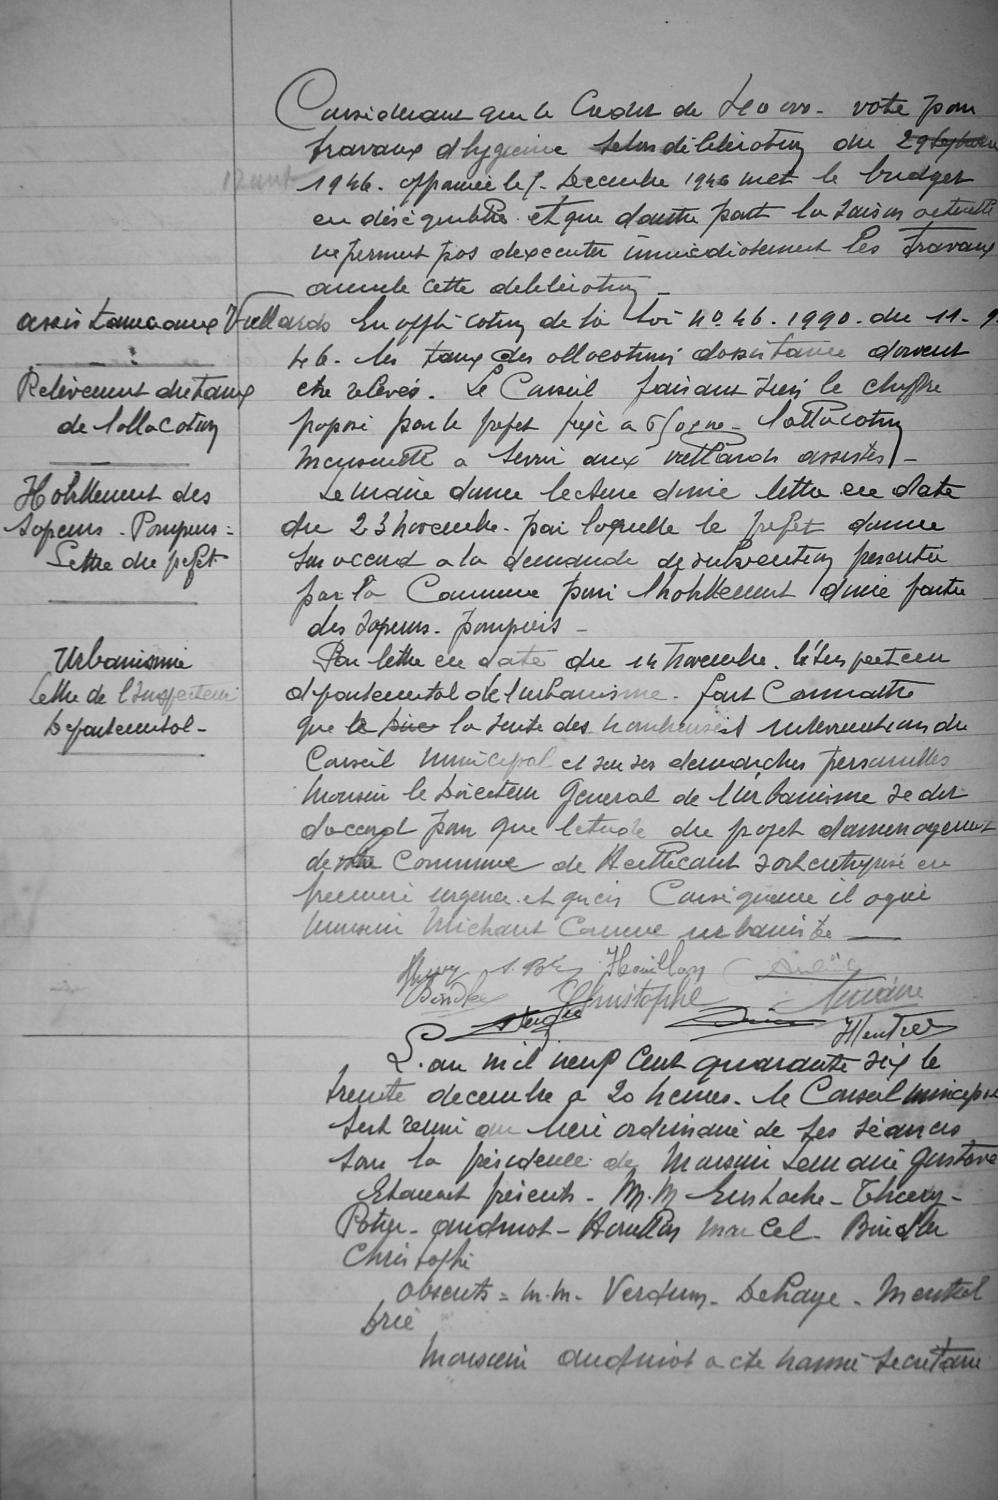 Considerant que le Credit de voté pour
travaux d'hygiène selon déliberation du 29 Septembre
12 aout
1946. approuvée le 7. Decembre 1946 met le budget
en déséquilibre et que dautre part la saison actuelle
ne permet pas dexecuter immediatement les travaux
annule cette deliberation _
assistance aux Vieillards En application de la Loi no 46.1990. du 11-9.
46. les taux des allocations dassistance doivent
Relèvement du taux
etre relevés. Le Conseil faisant sien le chiffre
de lallocation
proposé par le prefet fixe a lallocation
mensuelle a servir aux vieillards assistés _
Habillement des
Le maire donne lecture dune lettre en date
Sapeurs - Pompiers =
du 23 novembre. par laquelle le prefet donne
Lettre du prefet
son accord a la demande de subvention presentée
par la Commune pour lhabillement dune partie
des sapeurs. pompiers _
Urbanisme
Par lettre en date du 14 Novembre. l'Inspecteur
Lettre de l'Inspecteur
départemental de l'urbanisme. fait Connaitre
Départemental -
que la suite des nombreuses interventions du
Conseil municipal et sur ses demarches personnelles
Monsieur le Directeur General de l'Urbanisme se dit
daccord pour que letude du projet damenagement
de votre Commune de soit entreprise en
premiere urgence et quen Conséquence il a
Monsieur Michaut Comme urbaniste _
Christophe
L'an mil neuf Cent quarante six le
trente decembre a 20 heures. le Conseil municipal
sest reuni au lieu ordinaire de ses séances
sous la présidence de Monsieur Lemaire Gustave
Etaient présents - M.M Eustache - Thiery -
Potier - Audinot - Houillon Marcel - Bindler
Christophe
absents = M.M. Verdun - Delhaye - Mentrel
Drié
Monsieur Audinot a été nommé Secretaire